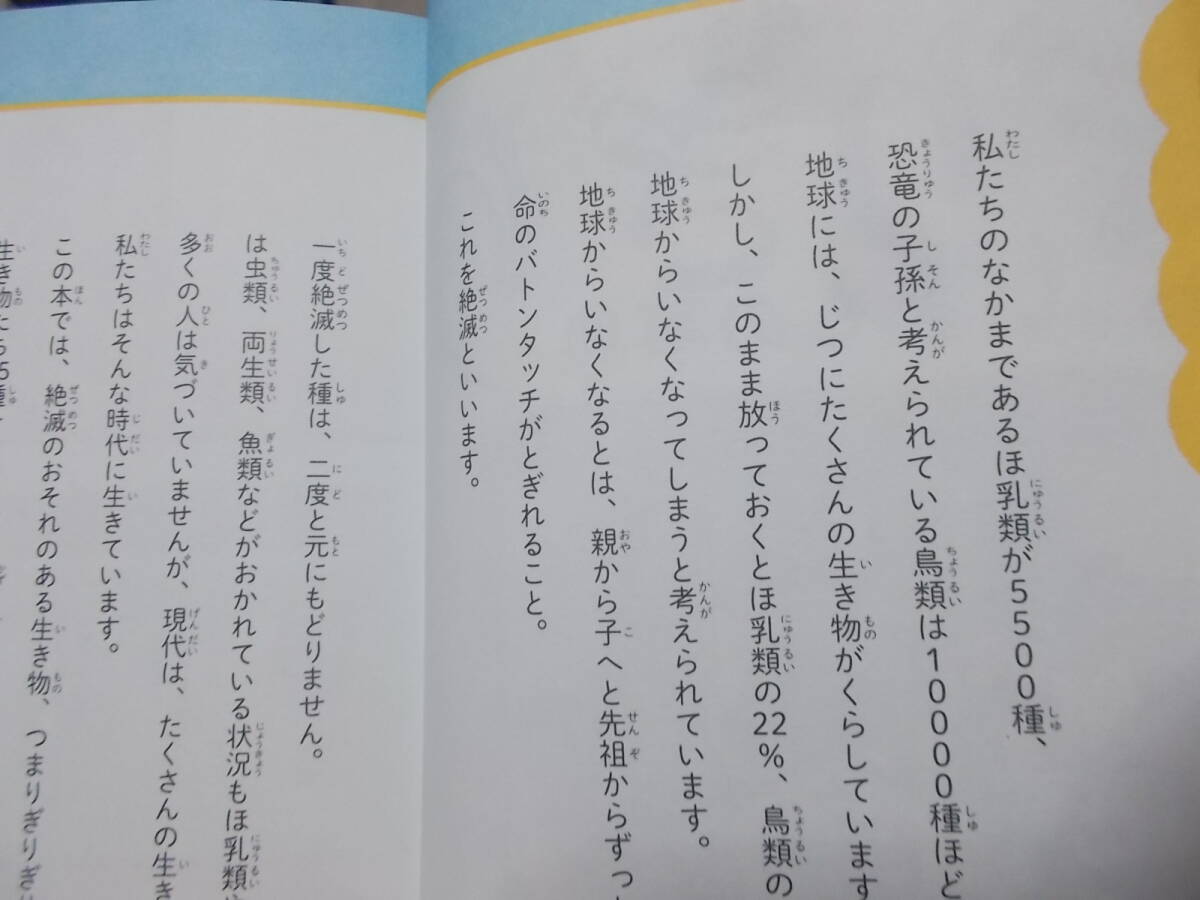 私たちのなかまであるほ乳類が5500種、
恐竜の子孫と考えられている鳥類は10000種ほど
地球には、じつにたくさんの生き物がくらしています
しかし、このまま放っておくとほ乳類の22%、鳥類の
地球からいなくなってしまうと考えられています。
地球からいなくなるとは、親から子へと先祖からずっ
命のバトンタッチがとぎれること。
これを絶滅といいます。
一度絶滅した種は、二度と元にもどりません。
は虫類、両生類、魚類などがおかれている状況もほ乳類や
多くの人は気づいていませんが、現代は、たくさんの生き
私たちはそんな時代に生きています。
この本では、絶滅のおそれのある生き物、つまりぎりぎり
生き物たち